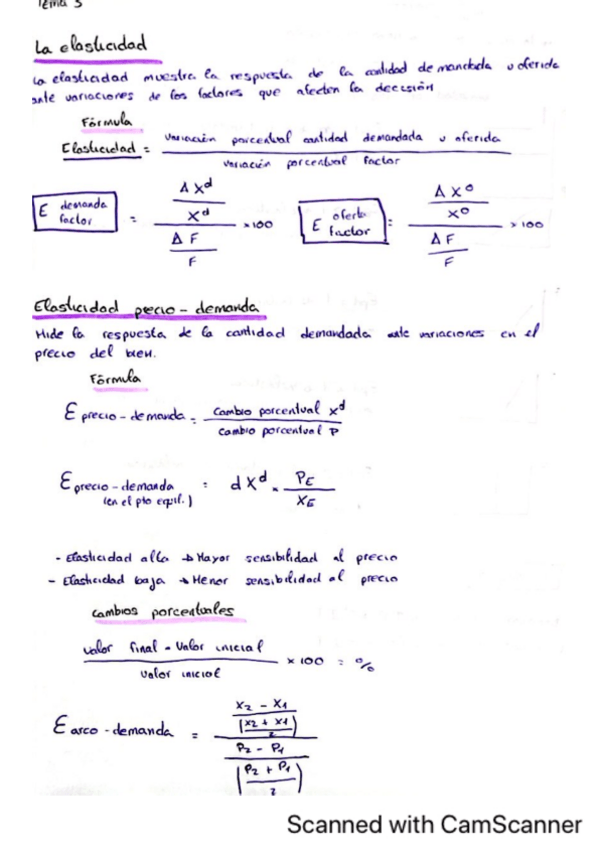 Tema 3
La elasticidad
La elasticidad muestra la respuesta de la cantidad demandada u oferida
ante variaciones de los factores que afecten la decisión
Fórmula
Elasticidad = variación porcentual cantidad demandada u oferida / variación porcentual factor
E demanda factor = (Δ X^d / X^d) / (Δ F / F) × 100   E oferta factor = (Δ X^o / X^o) / (Δ F / F) × 100
Elasticidad precio - demanda
Mide la respuesta de la cantidad demandada ante variaciones en el
precio del bien.
Fórmula
E precio - demanda = Cambio porcentual X^d / Cambio porcentual P
E precio - demanda (en el pto equil.) = dX^d · P_E / X_E
- Elasticidad alta → Mayor sensibilidad al precio
- Elasticidad baja → Menor sensibilidad al precio
Cambios porcentuales
valor final - Valor inicial / Valor inicial × 100 = %
E arco - demanda = ((X2 - X1) / ((X2 + X1) / 2)) / ((P2 - P1) / ((P2 + P1) / 2))
Scanned with CamScanner